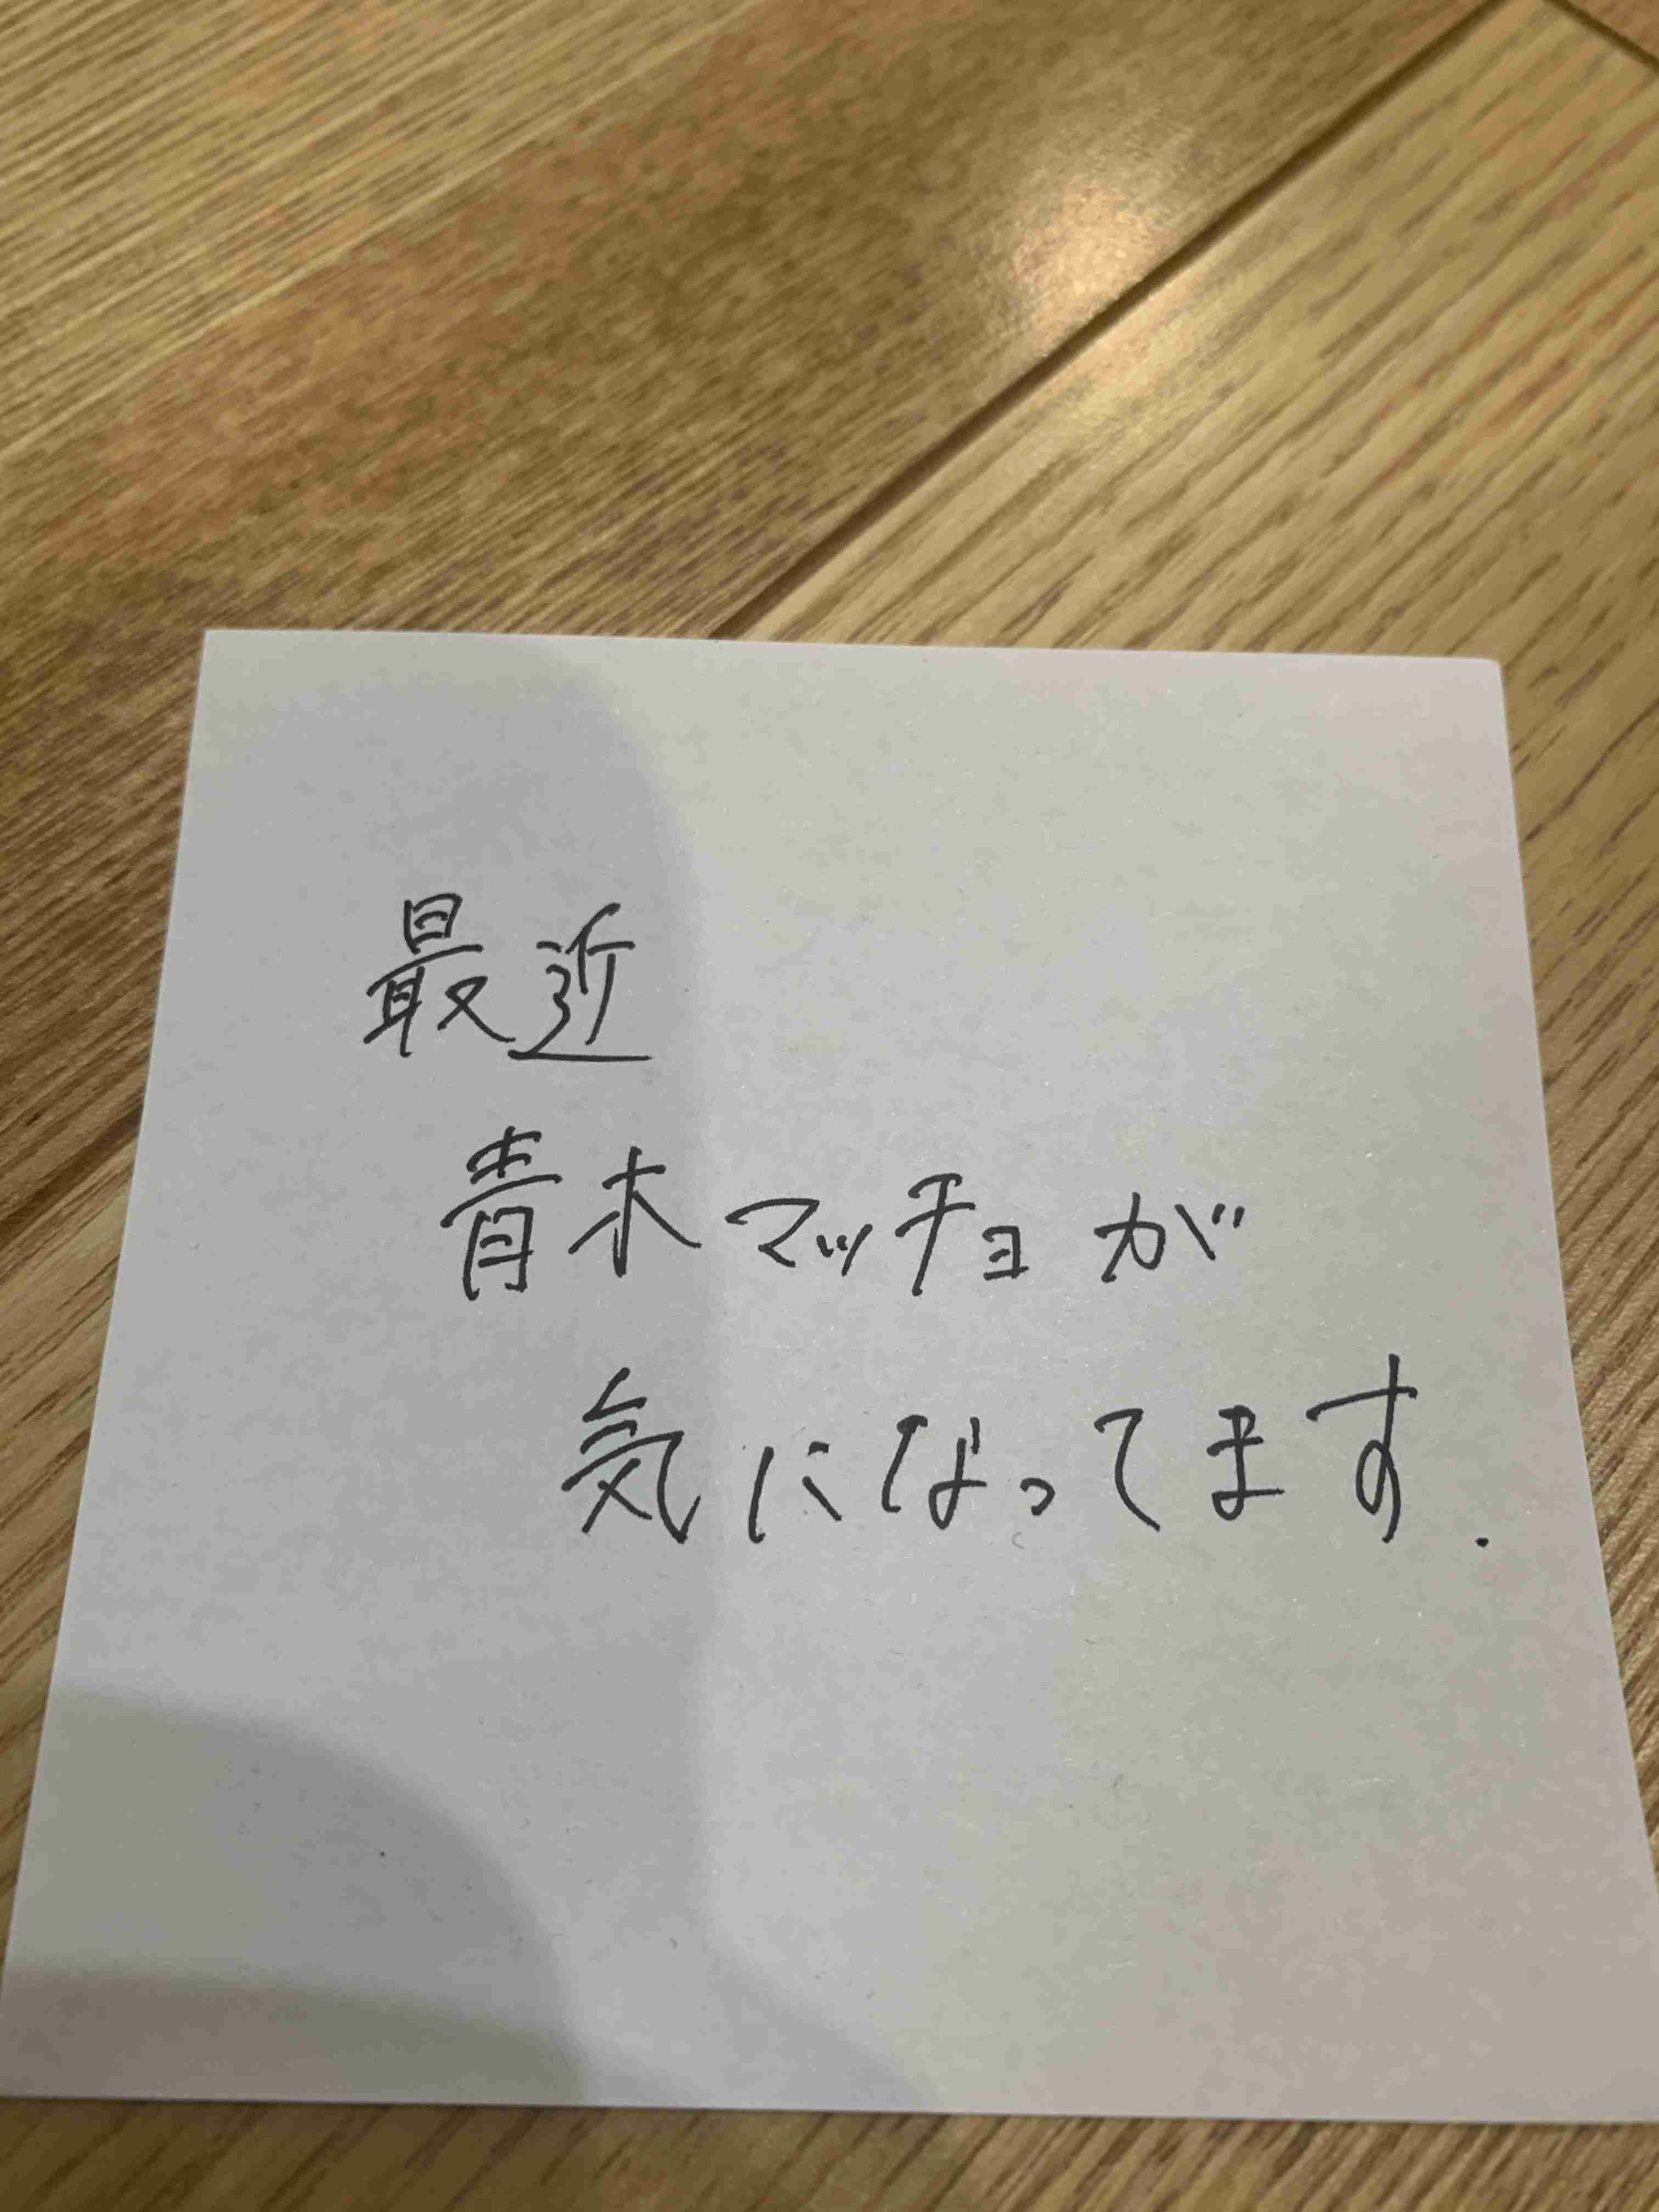 最近
青木マッチョが
気になってます.